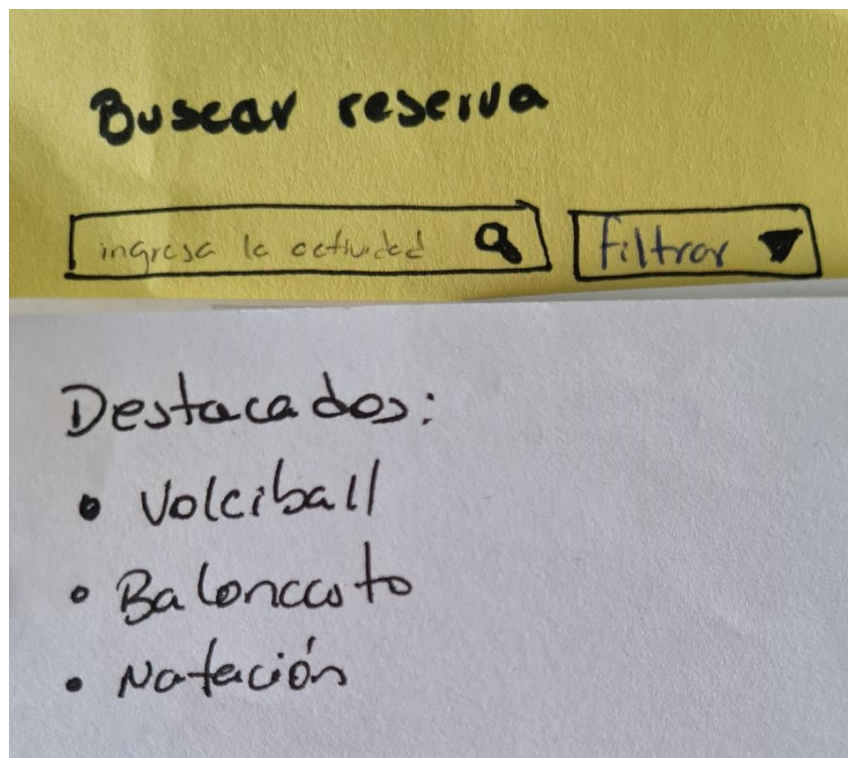 Buscar reserva
ingresa la actividad
filtrar
Destacados:
• Voleiball
• Baloncesto
• Natación